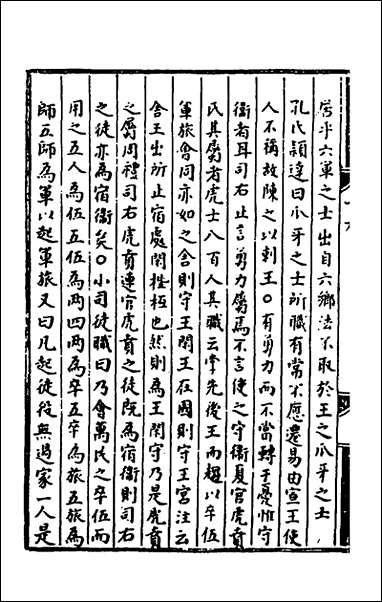 若此六軍之士出自六鄉法不取於王之爪牙之士
孔氏穎達曰爪牙之士所職有常不應遷易由宣王使
人不稱故陳之以刺王○有勇力而不當轉于憂惟守
衛者耳司右止言勇力屬焉不言使之守衛夏官虎賁
氏其屬者虎士八百人其職云掌先後王而趨以卒伍
軍旅會同亦如之舍則守王閑王在國則守王宮注云
舍王出所止宿處閑梐枑也然則為王閑守乃是虎賁
之屬周禮司右虎賁連官虎賁之徒既為宿衛則司右
之徒亦為宿衛矣○小司徒職曰乃會萬民之卒伍而
用之五人為伍五伍為兩四兩為卒五卒為旅五旅為
師五師為軍以起軍旅又曰凡起徒役無過家一人是